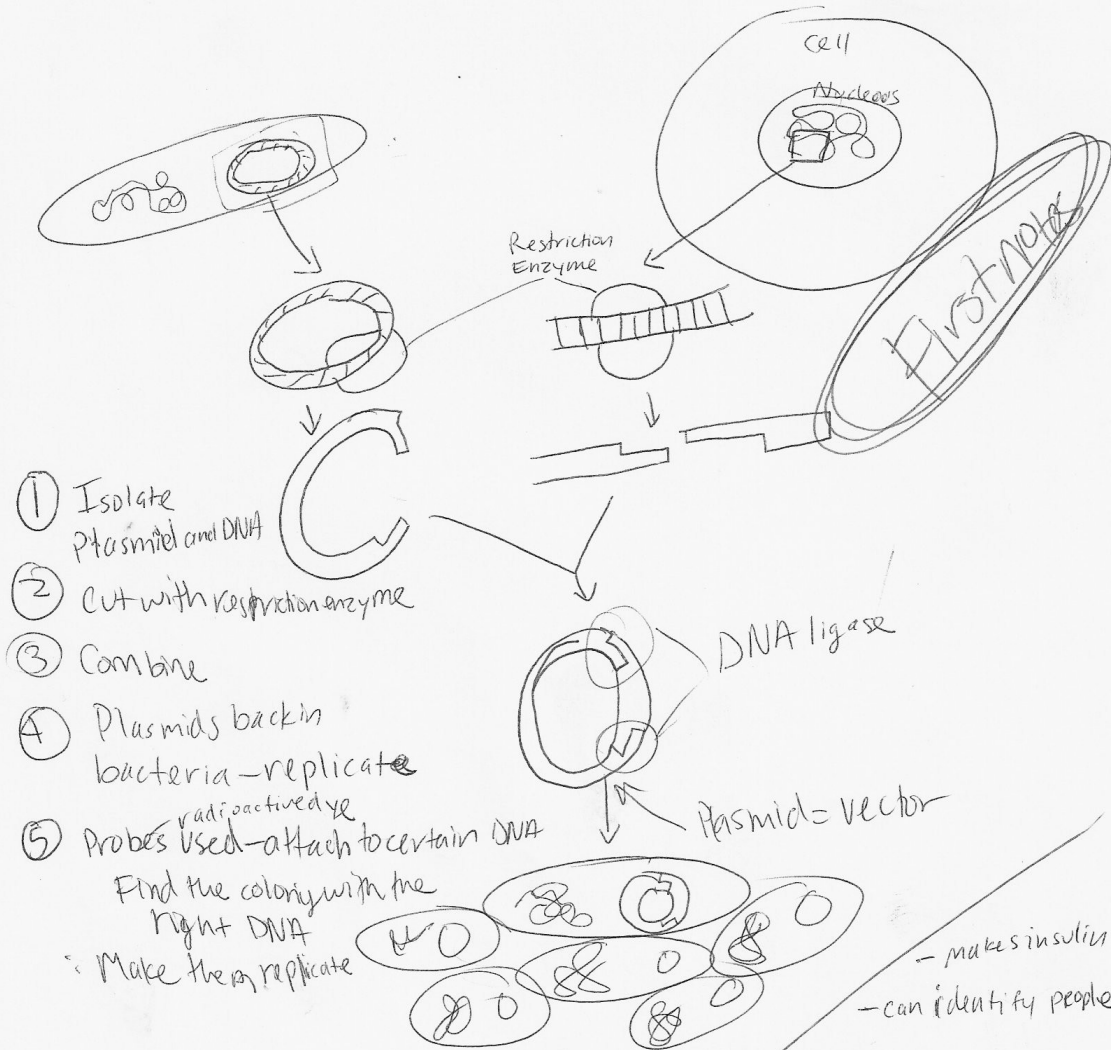 Cell
Nucleus
Restriction
Enzyme
First notes
① Isolate
Plasmid and DNA
② Cut with restriction enzyme
③ Combine
④ Plasmids back in
bacteria - replicate
radioactive dye
⑤ Probes used - attach to certain DNA
Find the colony with the
right DNA
Make them replicate
DNA ligase
Plasmid = vector
- makes insulin
- can identify people